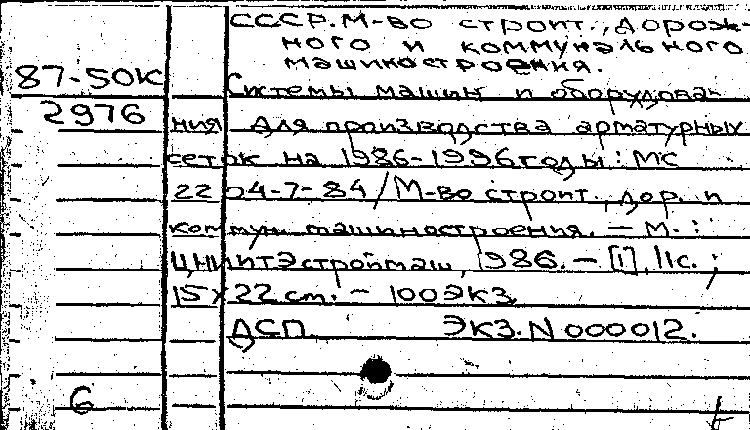 СССР. М-во строит., дорож-
ного и коммунального
машиностроения.
87-50К Системы машин и оборудова-
2976 ния для производства арматурных
сеток на 1986-1996 годы: МС
22 04-7-84/М-во строит., дор. и
коммун. машиностроения. — М.:
ЦНИИТЭстроймаш, 1986. — [1], 11с.;
15х22 см. — 100 экз.
ДСП. Экз. N 000012.
6